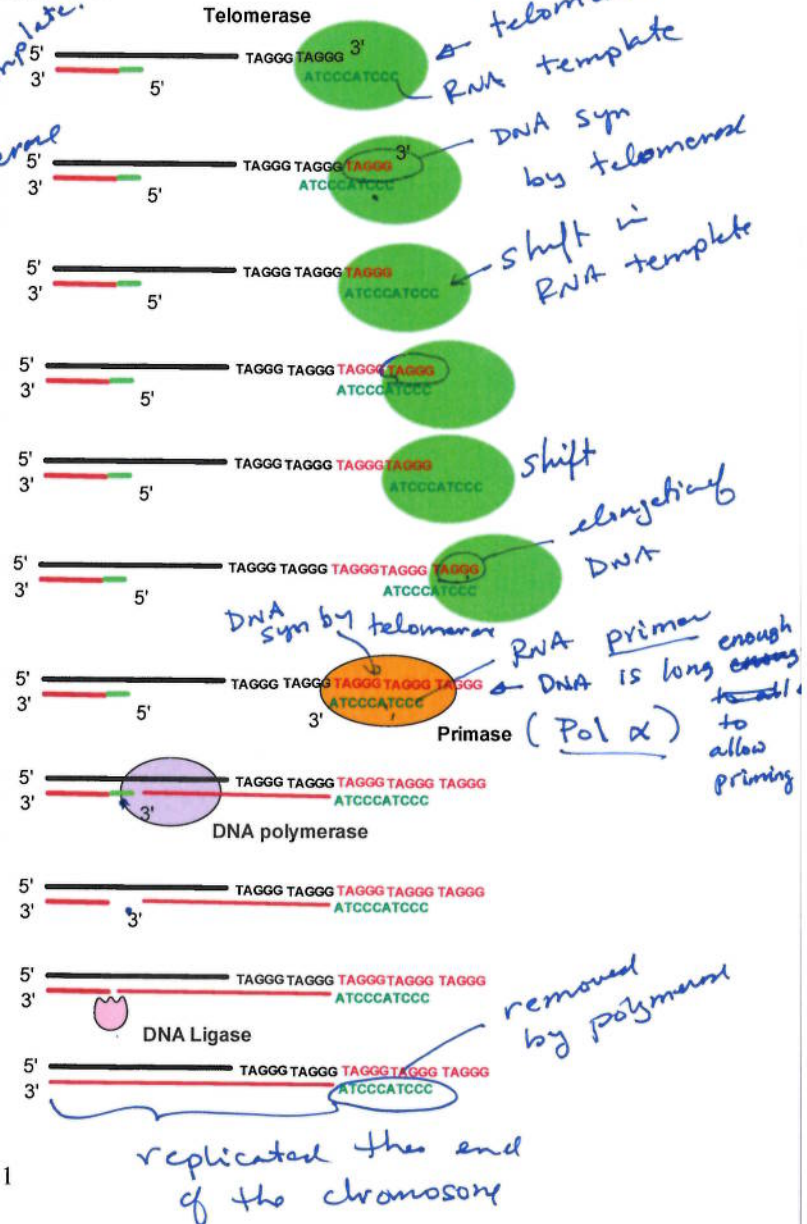 Telomerase
template.
5' TAGGG TAGGG 3'
3' ATCCCATCCC
5'
RNA template
5' TAGGG TAGGG TAGGG 3'
3' ATCCCATCCC
5'
DNA syn
by telomerase
5' TAGGG TAGGG TAGGG
3' ATCCCATCCC
5'
shift in
RNA template
5' TAGGG TAGGG TAGGG TAGGG
3' ATCCCATCCC
5'
5' TAGGG TAGGG TAGGG TAGGG
3' ATCCCATCCC
5'
shift
5' TAGGG TAGGG TAGGG TAGGG TAGGG
3' ATCCCATCCC
5'
elongation of
DNA
DNA
syn by telomerase
RNA primer
DNA is long enough
to
allow
priming
5' TAGGG TAGGG TAGGG TAGGG TAGGG
3' ATCCCATCCC
5' 3'
Primase (Pol α)
5' TAGGG TAGGG TAGGG TAGGG TAGGG
3' ATCCCATCCC
3'
DNA polymerase
5' TAGGG TAGGG TAGGG TAGGG TAGGG
3' ATCCCATCCC
3'
5' TAGGG TAGGG TAGGG TAGGG TAGGG
3' ATCCCATCCC
DNA Ligase
removed
by polymerase
5' TAGGG TAGGG TAGGG TAGGG TAGGG
3' ATCCCATCCC
replicated the end
of the chromosome
1